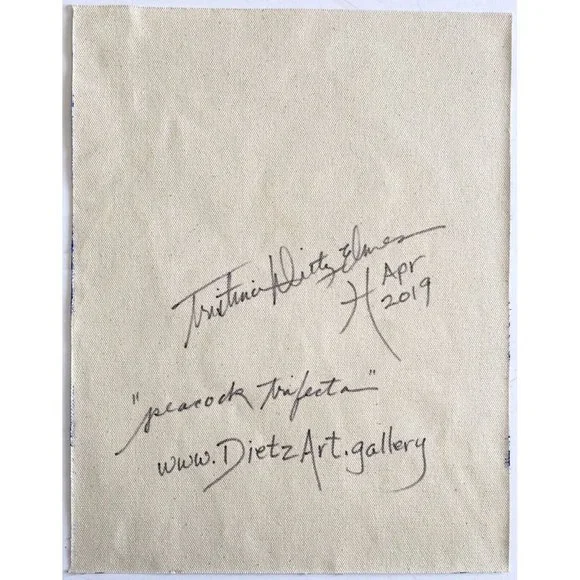 Tristina Dietz Elmes
Apr
2019
"peacock trifecta"
www.DietzArt.gallery